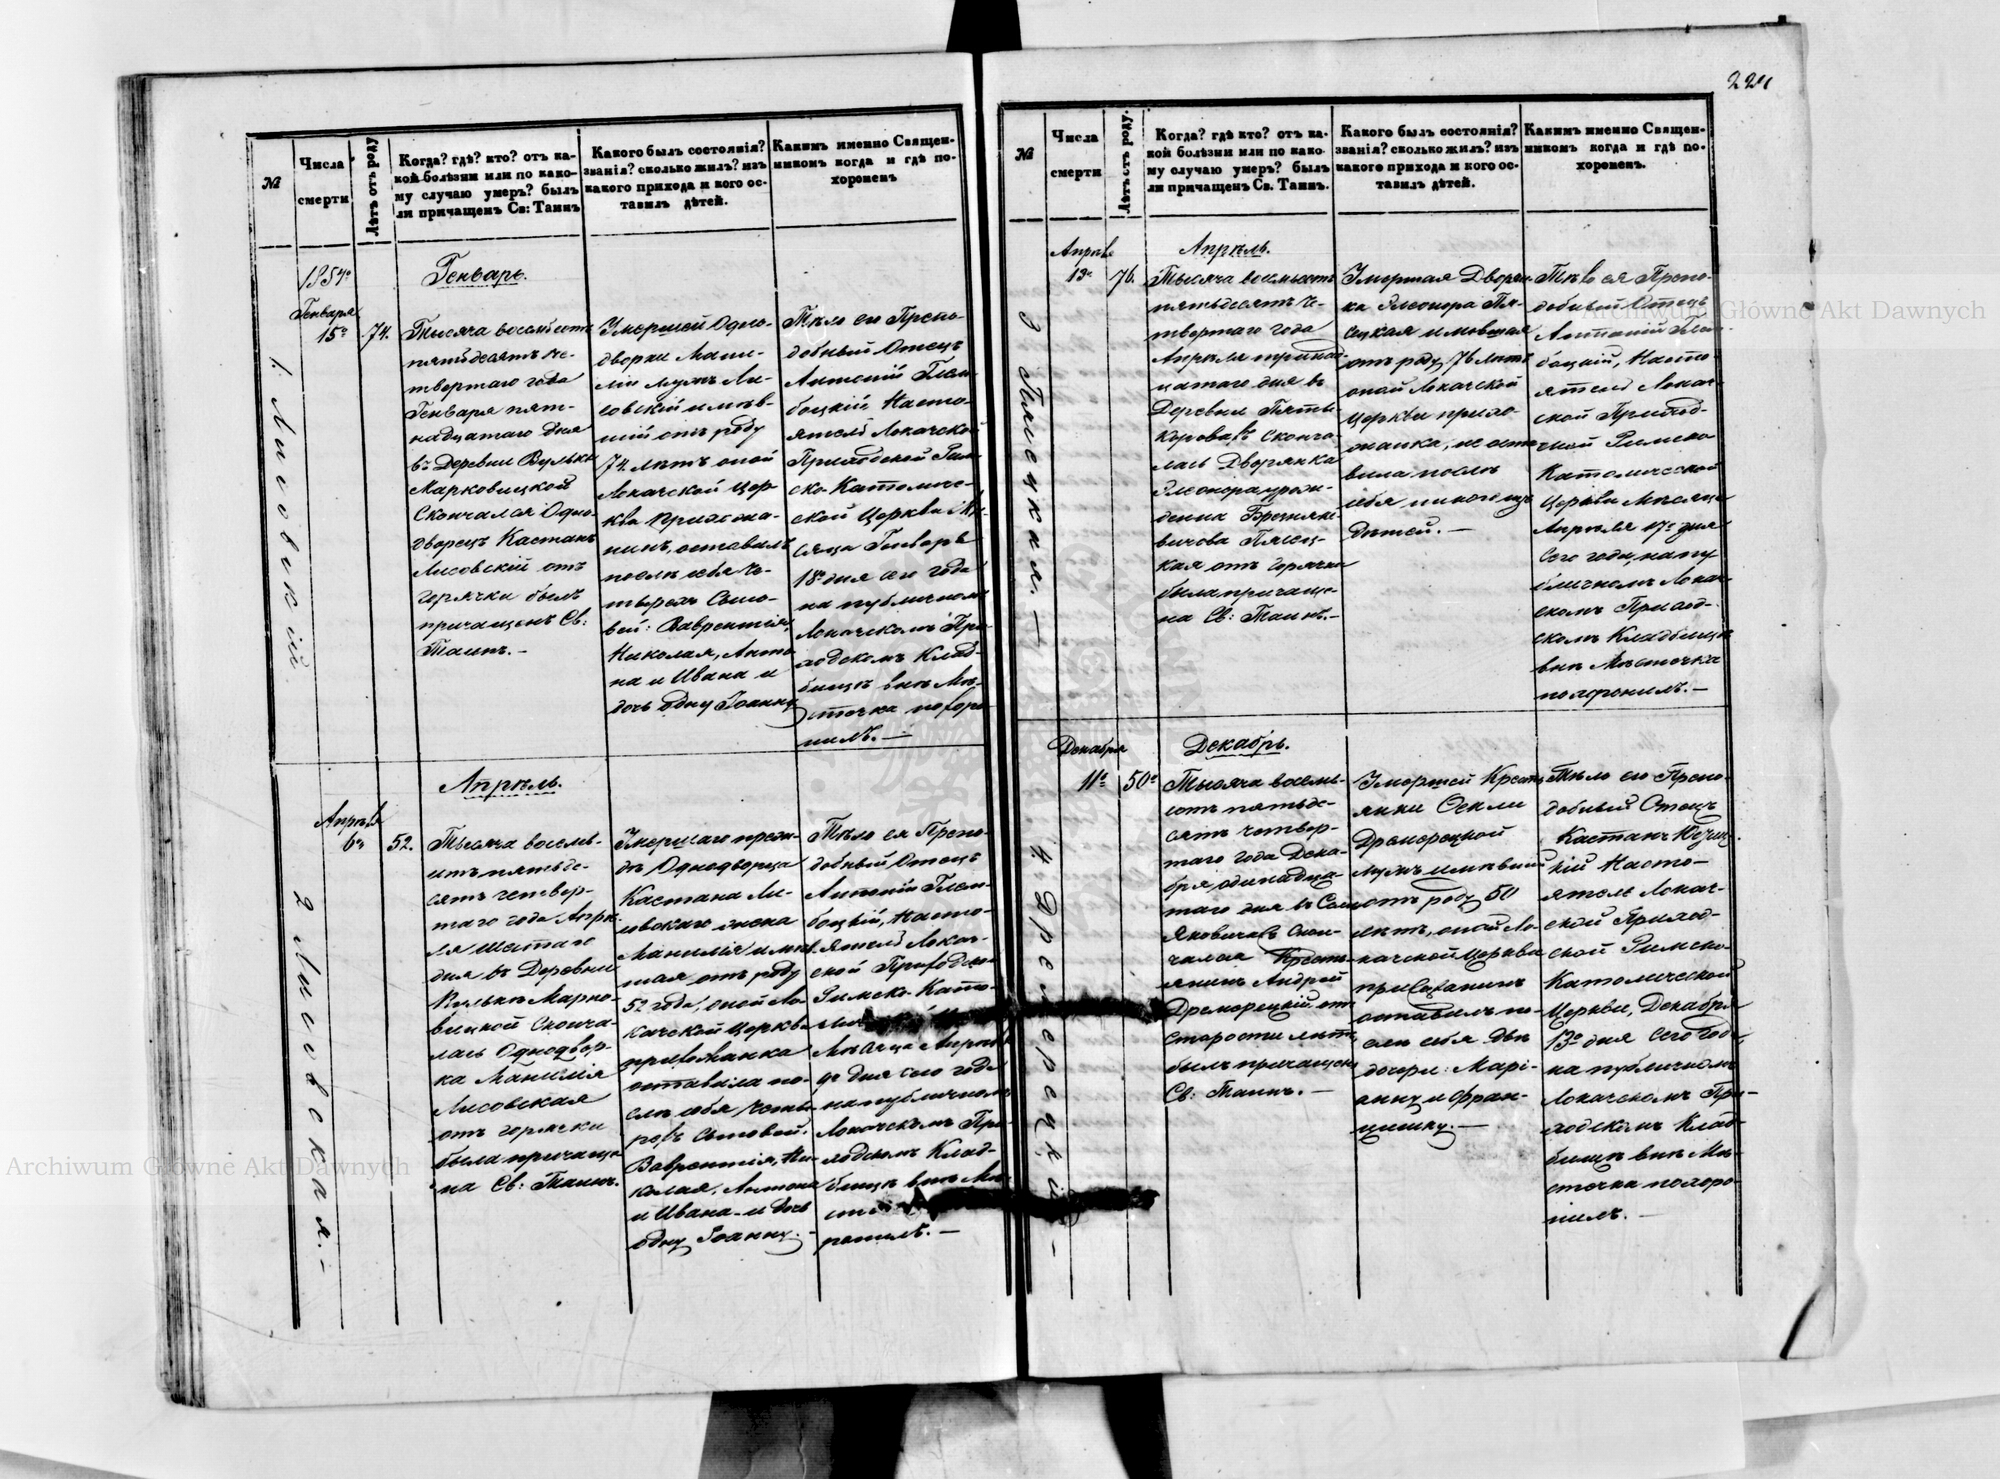 224
№
Числа
смерти
Лѣтъ отъ роду
Когда? гдѣ? кто? отъ ка-
кой болѣзни или по како-
му случаю умеръ? былъ
ли причащенъ Св: Таинъ
Какого былъ состоянія?
званія? сколько жилъ? изъ
какого прихода и кого ос-
тавилъ дѣтей.
Какимъ именно Священ-
никомъ когда и гдѣ по-
хороненъ
1. Лисовскій
1854го
Генваря
15го
74.
Генварь.
Тысяча восемьсотъ
пятьдесятъ че-
твертаго года
Генваря пят-
надцатаго дня
въ Деревни Вульки
Марковицкой
Скончался Одно-
дворецъ Каетанъ
Лисовскій отъ
горячки былъ
причащенъ Св:
Таинъ. —
Умершей Одно-
дворки Мани-
ліи мужъ Ли-
совскій имѣв-
шій отъ роду
74. лѣтъ оной
Локачской Цер-
кви Прихожа-
нинъ, оставилъ
послѣ себя че-
тверехъ Сыно-
вей: Ваврентія,
Николая, Анто-
на и Ивана и
дочь одну Іоанну
Тѣло его Препо-
добный Отецъ
Антоній Глем-
боцкій Насто-
ятель Локачской
Приходской Рим-
ско-Католиче-
ской Церкви Мѣ-
сяца Генваря
18го дня сего года
на публичномъ
Локачскомъ При-
ходскомъ Клад-
бищѣ внѣ Мѣ-
стечка похоро-
нилъ. —
2 Лисовская. —
Апрѣля
6го
52.
Апрѣль.
Тысяча восемь-
сотъ пятьде-
сятъ четвер-
таго года Апрѣ-
ля шестаго
дня въ Деревни
Вулькѣ Марко-
вицкой Сконча-
лась Однодвор-
ка Манилія
Лисовская
отъ горячки
была причаще-
на Св: Таинъ.
Умершаго преж-
дѣ Однодворца
Каетана Ли-
совскаго жена
Манилія имѣв-
шая отъ роду
52 года, оной Ло-
качской Церкви
прихожанка
оставила по-
слѣ себя четы-
рехъ сыновей:
Ваврентія, Ни-
колая, Антона
и Ивана и дочь
одну Іоанну. —
Тѣло ея Препо-
добный Отецъ
Антоній Глем-
боцкій, Насто-
ятель Локач-
ской Приходско-
Римско-Като-
Мѣсяца Апрѣля
9го дня сего года
на публичномъ
Локачскомъ При-
ходскомъ Клад-
бищѣ внѣ Мѣ-
ронилъ. —
№
Числа
смерти
Лѣтъ отъ роду.
Когда? гдѣ кто? отъ ка-
кой болѣзни или по како-
му случаю умеръ? былъ
ли причащенъ Св. Таинъ.
Какого былъ состоянія?
званія? сколько жилъ? изъ
какого прихода и кого ос-
тавилъ дѣтей.
Какимъ именно Священ-
никомъ когда и гдѣ по-
хороненъ.
3 Пясецкая. —
Апрѣля
13го
76.
Апрѣль.
Тысяча восемьсотъ
пятьдесятъ че-
твертаго года
Апрѣля тринад-
цатаго дня въ
Деревни Пяты-
Коровахъ сконча-
лась Дворянка
Элеонора урож-
денна
вичова Пясец-
кая отъ горячки
была причаще-
на Св: Таинъ. —
Умершая Дворян-
ка Элеонора Пя-
сецкая имѣвшая
отъ роду 76 лѣтъ
оной Локачской
Церкви прихо-
жанка, не оста-
вила послѣ
себя никого изъ
Дѣтей. —
Тѣло ея Препо-
добный Отецъ
Антоній Глем-
боцкій, Насто-
ятель Локач-
ской Приход-
ской Римско
Католической
Церкви Мѣсяца
Апрѣля 17го дня
Сего года, на пу-
бличномъ Локач-
скомъ Приход-
скомъ Кладбищѣ
внѣ Мѣстечка
похоронилъ. —
Декабря
11го
50го
Декабрь.
Тысяча восемь-
сотъ пятьде-
сятъ четвер-
таго года Дека-
бря одинадца-
таго дня въ Селѣ
Яковичахъ Скон-
чался Кресть-
янинъ Андрей
отъ
старости лѣтъ
былъ причащенъ
Св: Таинъ. —
Умершей Кресть-
янки
мужъ имѣвшій
отъ роду 50
лѣтъ, оной Ло-
качской Церкви
прихожанинъ
оставилъ по-
слѣ себя двѣ
дочери: Марі-
анну и Фран-
цишку. —
Тѣло его Препо-
добный Отецъ
Каетанъ
кій Насто-
ятель Локач-
ской Приход-
ской Римско-
Католической
Церкви, Декабря
13го дня Сего года,
на публичномъ
Локачскомъ При-
ходскомъ Клад-
бищѣ внѣ Мѣ-
стечка похоро-
нилъ. —
Archiwum Główne Akt Dawnych
Archiwum Główne Akt Dawnych